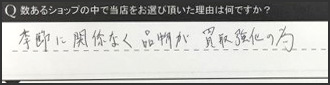 Q 数あるショップの中で当店をお選び頂いた理由は何ですか?
季節に関係なく品物が買取強化の為